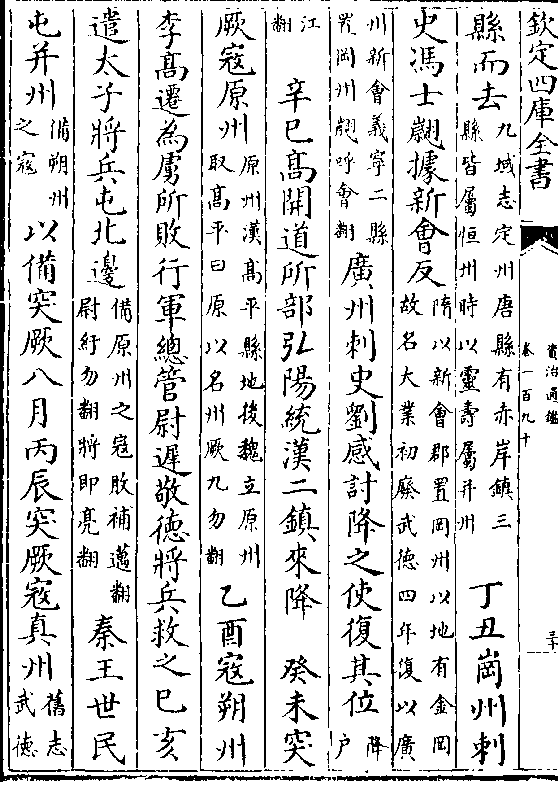 欽定四庫全書
資治通鑑
卷一百九十
三十
縣而去九域志定州唐縣有赤岸鎮三縣皆屬恒州時以靈壽屬井州 丁丑崗州刺
史馮士翽據新會反隋以新會郡置岡州以地有金岡故名大業初廢武德四年復以廣
州新會義寧二縣置岡州翽呼會翻廣州刺史劉感討降之使復其位降户
江翻 辛巳高開道所部弘陽統漢二鎮來降 癸未突
厥寇原州原州漢高平縣地後魏立原州取高平曰原以名州厥九勿翻 乙酉寇朔州
李高遷為虜所敗行軍總管尉遲敬德將兵救之己亥
遣太子將兵屯北邊備原州之寇敗補邁翻尉紆勿翻將即亮翻 秦王世民
屯并州備朔州之寇以備突厥八月丙辰突厥寇真州舊志武德